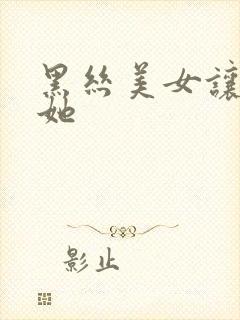 黑丝美女讓
她
影止